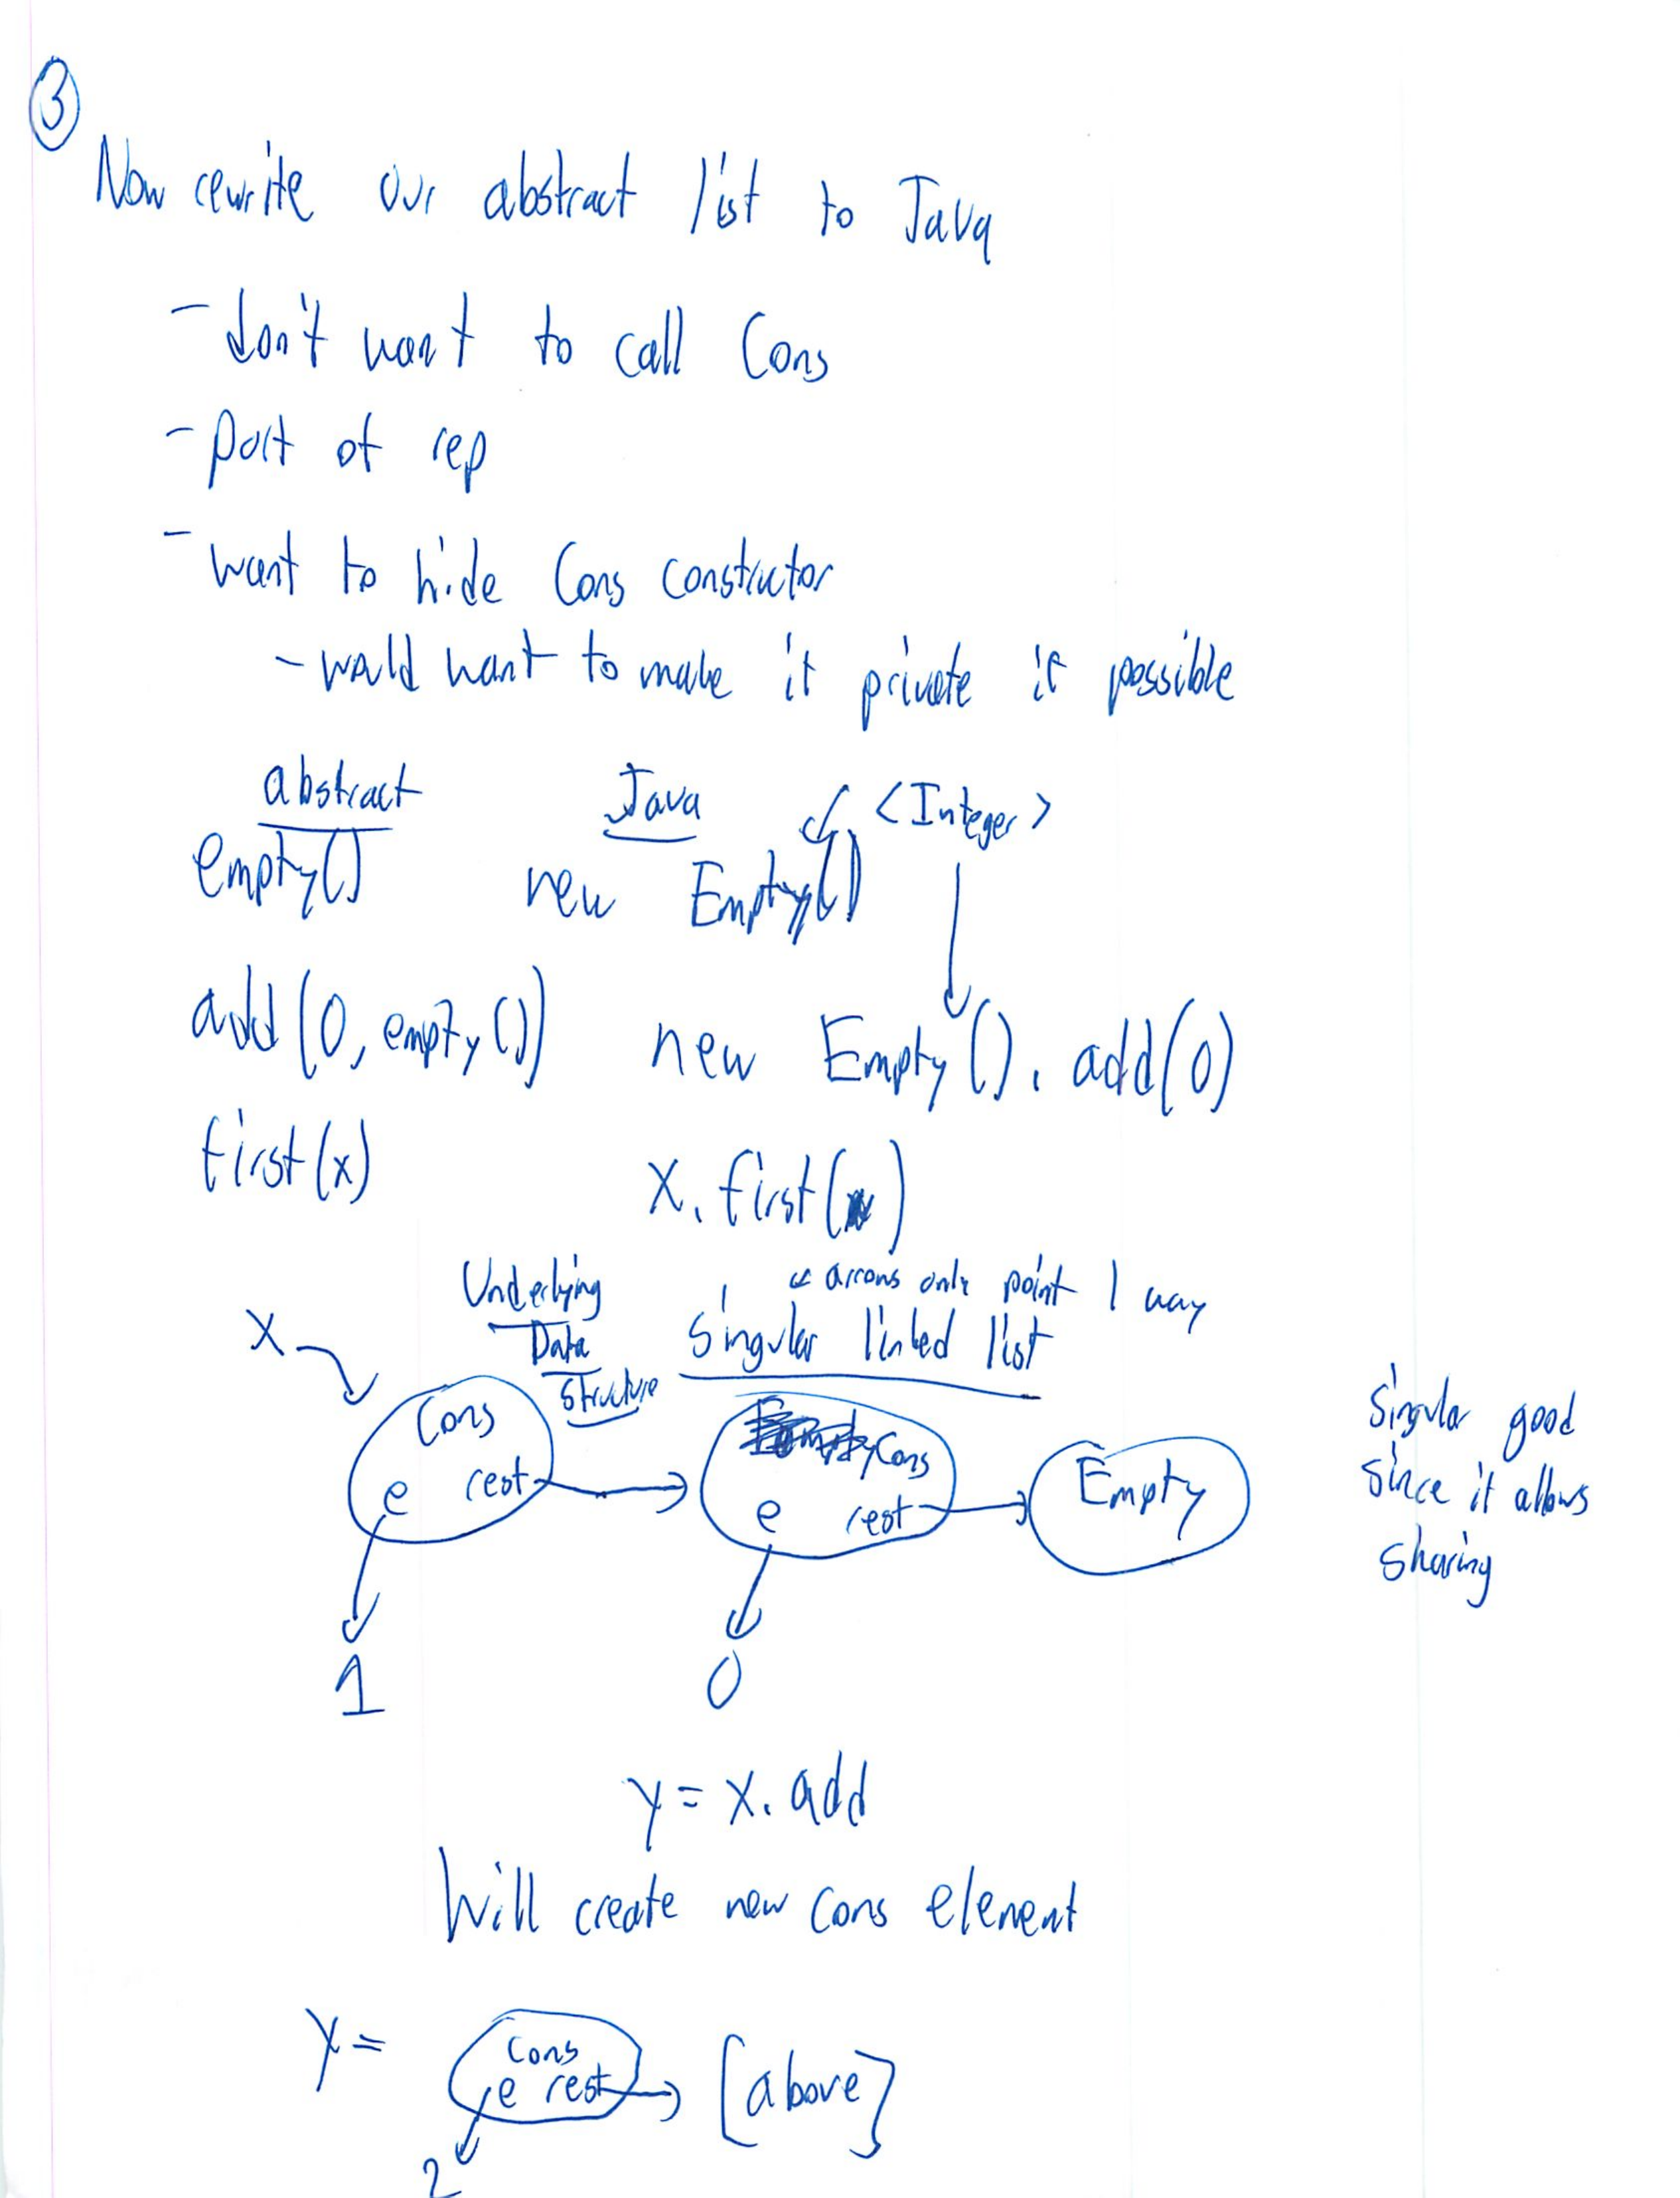 3
Now rewrite our abstract list to Java
- don't want to call Cons
- part of rep
- want to hide Cons constructor
- would want to make it private if possible
abstract Java <Integer>
empty() new Empty()
add(0, empty()) new Empty().add(0)
first(x) x.first()
Underlying Data Structure
singular linked list
← arrows only point 1 way
x
Cons
e rest
Cons
e rest
Empty
1
0
Singular good
since it allows
sharing
y = x.add
Will create new Cons element
y =
Cons
e rest
[above]
2